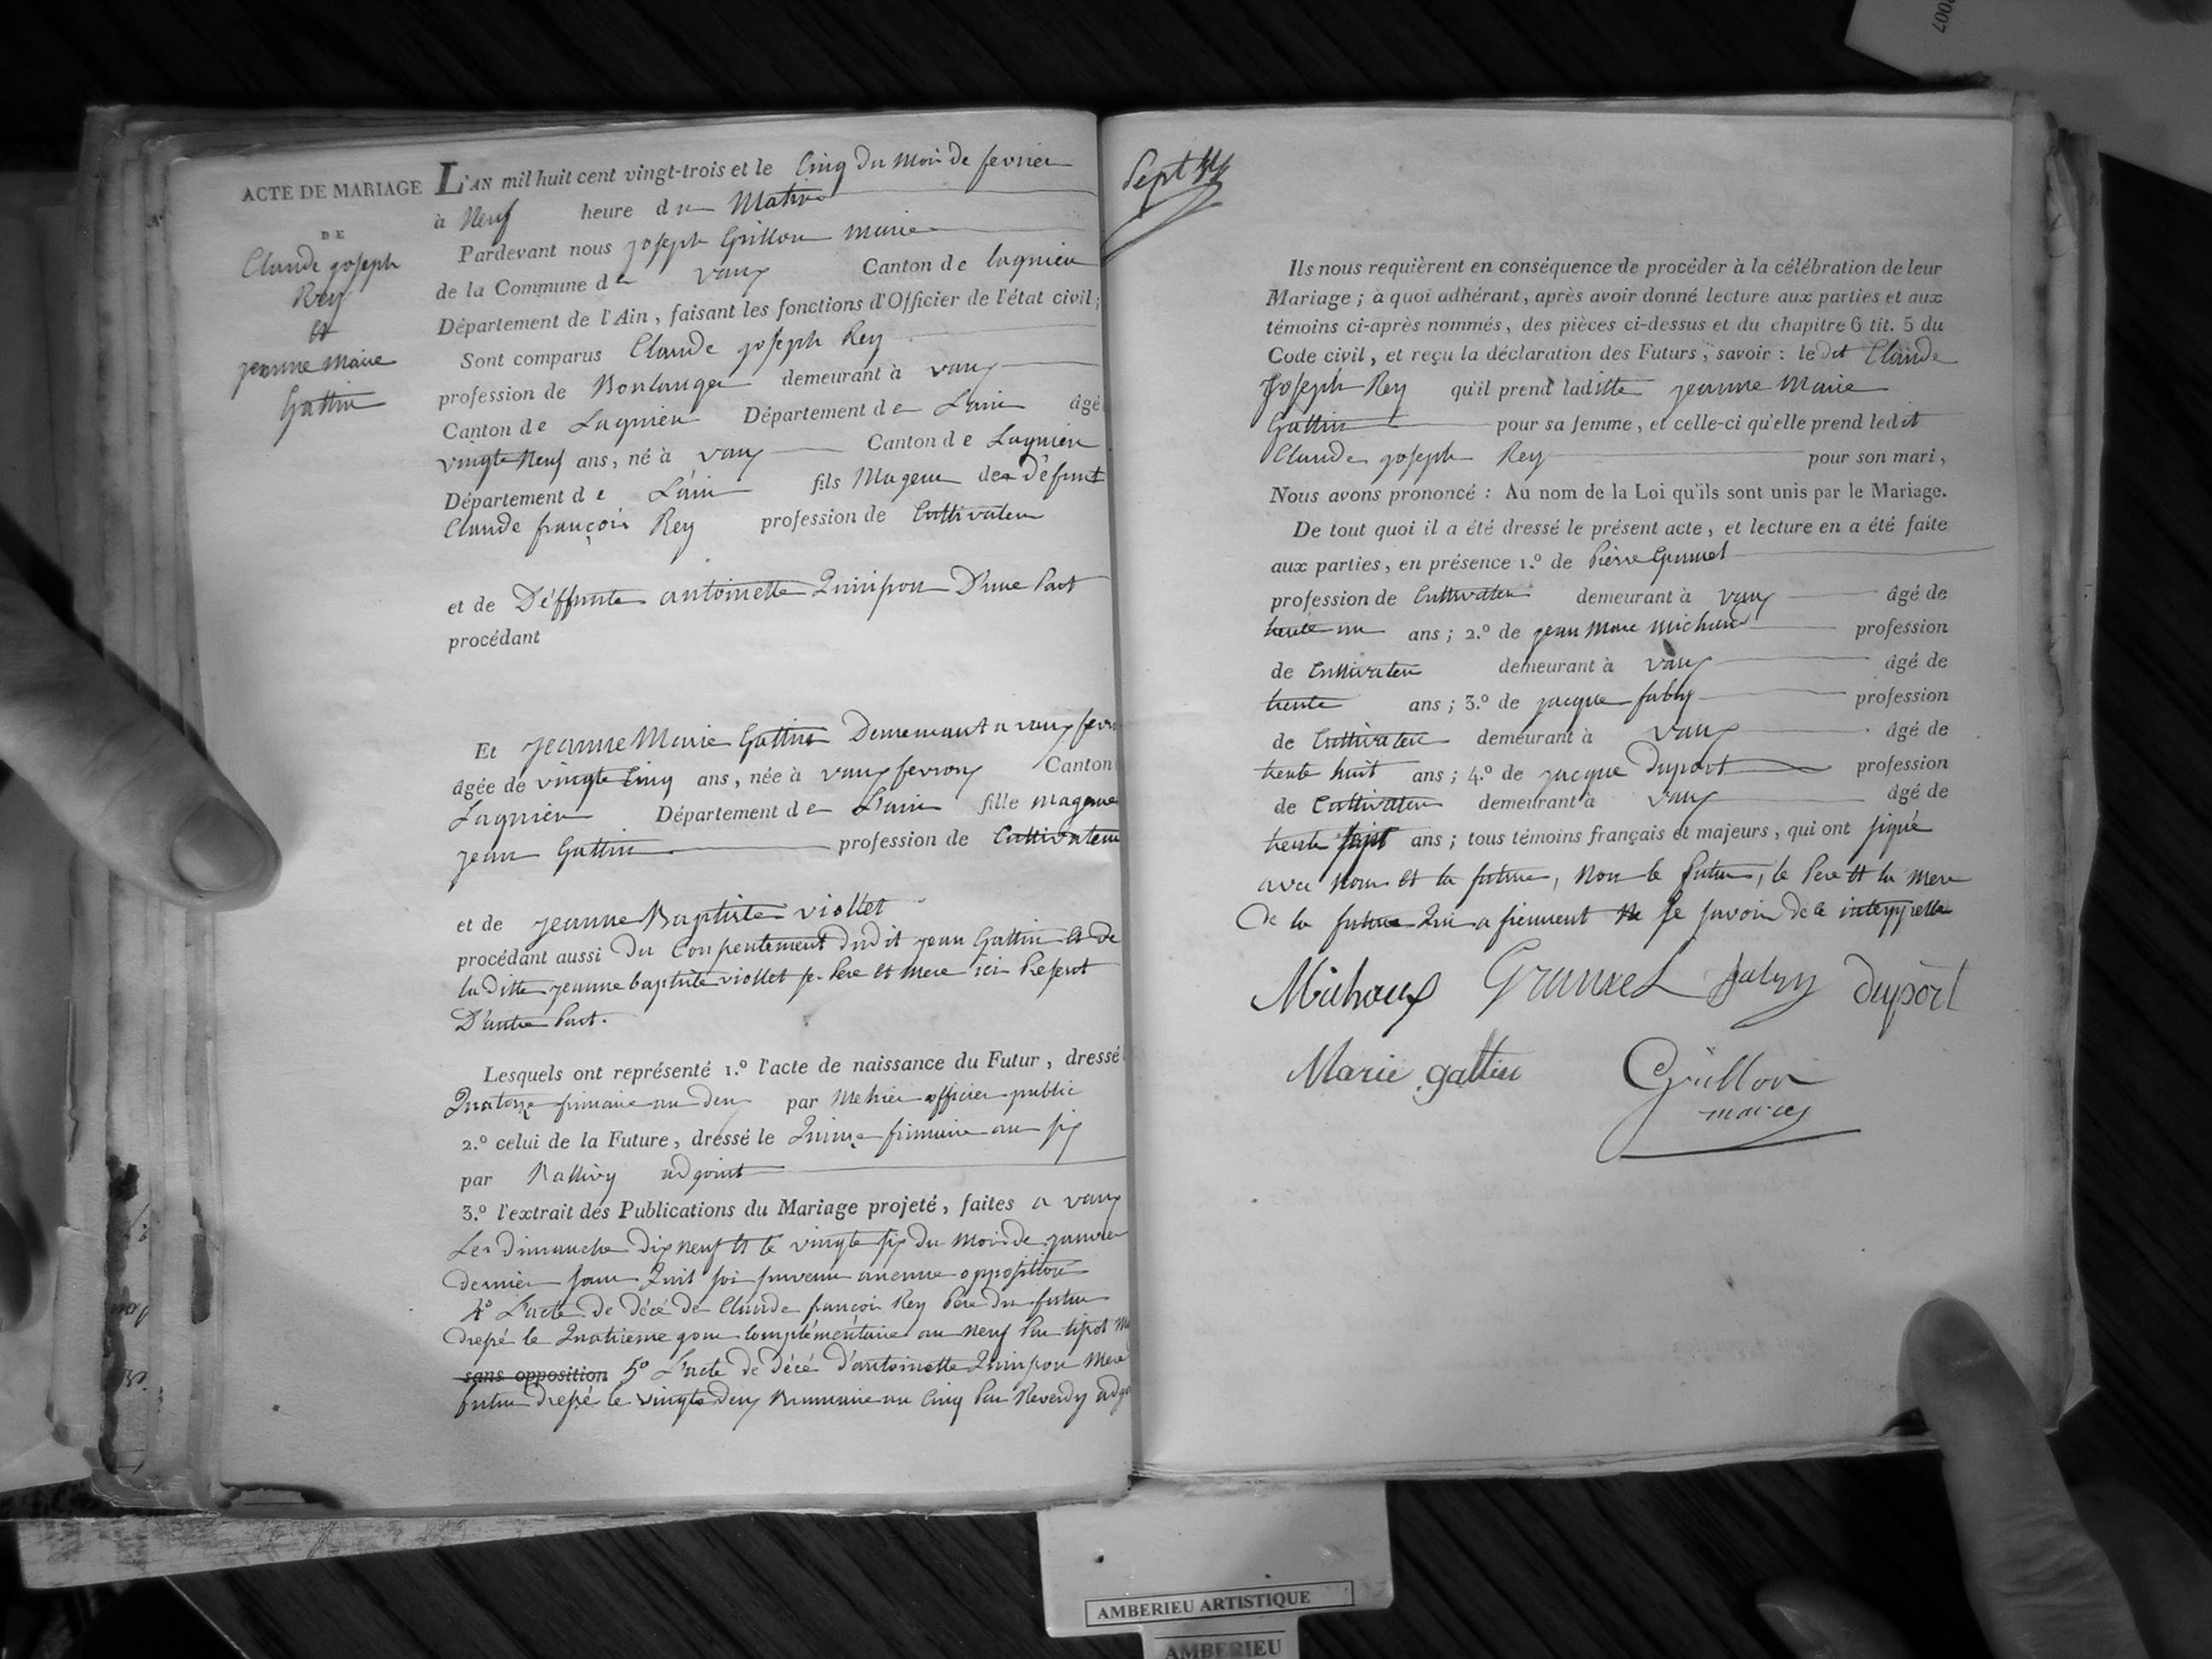 ACTE DE MARIAGE
DE
Claude joseph
Rey
et
jeanne Marie
Gattin
L'AN mil huit cent vingt-trois et le Cinq du Mois de fevrier
à Neuf heure du Matin
Pardevant nous joseph Grillon Maire
de la Commune de vaux Canton de lagnieu
Département de l'Ain, faisant les fonctions d'Officier de l'état civil;
Sont comparus Claude joseph Rey
profession de Boulanger demeurant à vaux
Canton de Lagnieu Département de L'ain âgé
vingt Neuf ans, né à vaux Canton de Lagnieu
Département de L'ain fils Mageur de Défunt
Claude françois Rey profession de Cultivateur
et de Déffunte antoinette Quinpon D'une Part
procédant
Et jeanne Marie Gattin Demeurant a vaux
âgée de vingt Cinq ans, née à vaux fevroux Canton
Lagnieu Département de L'ain fille mageure
jean Gattin profession de Cultivateur
et de jeanne Baptiste viollet
procédant aussi du Consentement dudit jean Gattin et de
la ditte jeanne baptiste viollet Pere et Mere ici Present
D'autre Part.
Lesquels ont représenté 1.º l'acte de naissance du Futur, dressé
Quatorze frimaire an deux par officier public
2.º celui de la Future, dressé le Quinze frimaire an six
par adjoint
3.º l'extrait des Publications du Mariage projeté, faites a vaux
Les dimanche dix neuf et le vingt six du Mois de janvier
dernier sans Quil soi survenu aucune opposition
4º L'acte de décé de Claude françois Rey Pere du futur
dressé le Quatrieme jour Complémentaire an neuf Par
sans opposition 5º L'acte de décé d'antoinette Quinpon Mere
futur dressé le vingt deux Brumaire an Cinq Par Reverdy
Sept
Ils nous requièrent en conséquence de procéder à la célébration de leur
Mariage; à quoi adhérant, après avoir donné lecture aux parties et aux
témoins ci-après nommés, des pièces ci-dessus et du chapitre 6 tit. 5 du
Code civil, et reçu la déclaration des Futurs, savoir: ledit Claude
Joseph Rey qu'il prend laditte jeanne Marie
Gattin pour sa femme, et celle-ci qu'elle prend ledit
Claude joseph Rey pour son mari,
Nous avons prononcé: Au nom de la Loi qu'ils sont unis par le Mariage.
De tout quoi il a été dressé le présent acte, et lecture en a été faite
aux parties, en présence 1.º de Pierre
profession de Cultivateur demeurant à vaux âgé de
trente un ans; 2.º de jean Marc Michaud profession
de Cultivateur demeurant à vaux âgé de
trente ans; 3.º de jacque fabry profession
de Cultivateur demeurant à vaux âgé de
trente huit ans; 4.º de jacque Duport profession
de Cultivateur demeurant à vaux âgé de
trente sept ans; tous témoins français et majeurs, qui ont signé
avec Nous et la future, Non le futur, le Pere et la Mere
De la future Qui ne le savoir
Michaux fabry duport
Marie gattin Grillon
maire
AMBERIEU ARTISTIQUE
AMBERIEU
2007